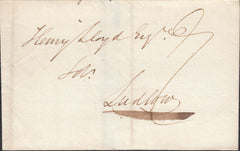 Henry Lloyd Esqr.
Solr.
Ludlow